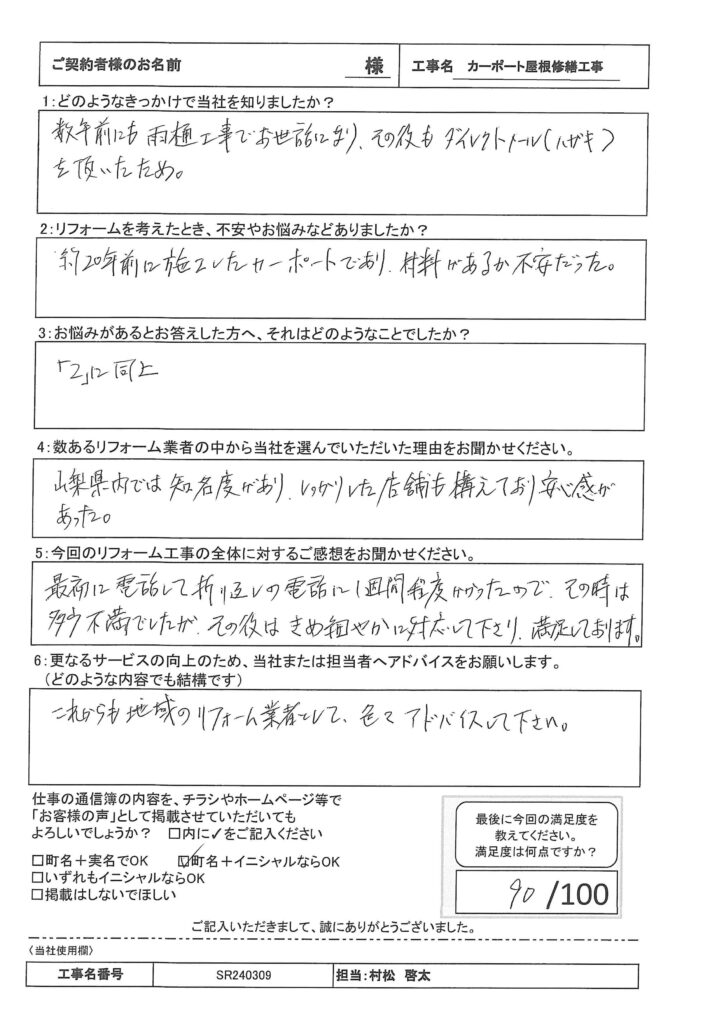 ご契約者様のお名前 様 工事名 カーポート屋根修繕工事
1:どのようなきっかけで当社を知りましたか？
数年前にも雨樋工事でお世話になり、その後もダイレクトメール(ハガキ)
を頂いたため。
2:リフォームを考えたとき、不安やお悩みなどありましたか？
約20年前に施工したカーポートであり、材料があるか不安だった。
3:お悩みがあるとお答えした方へ、それはどのようなことでしたか？
「2」に同上
4:数あるリフォーム業者の中から当社を選んでいただいた理由をお聞かせください。
山梨県内では知名度があり、しっかりした店舗も構えており安心感が
あった。
5:今回のリフォーム工事の全体に対するご感想をお聞かせください。
最初に電話して折り返しの電話に1週間程度かかったので、その時は
多少不満でしたが、その後はきめ細やかに対応して下さり、満足しております。
6:更なるサービスの向上のため、当社または担当者へアドバイスをお願いします。
(どのような内容でも結構です)
これからも地域のリフォーム業者として、色々アドバイスして下さい。
仕事の通信簿の内容を、チラシやホームページ等で
「お客様の声」として掲載させていただいても
よろしいでしょうか？ □内に✓をご記入ください
□町名＋実名でOK ☑町名＋イニシャルならOK
□いずれもイニシャルならOK
□掲載はしないでほしい
最後に今回の満足度を
教えてください。
満足度は何点ですか？
90/100
ご記入いただきまして、誠にありがとうございました。
〈当社使用欄〉
工事名番号 SR240309 担当:村松 啓太